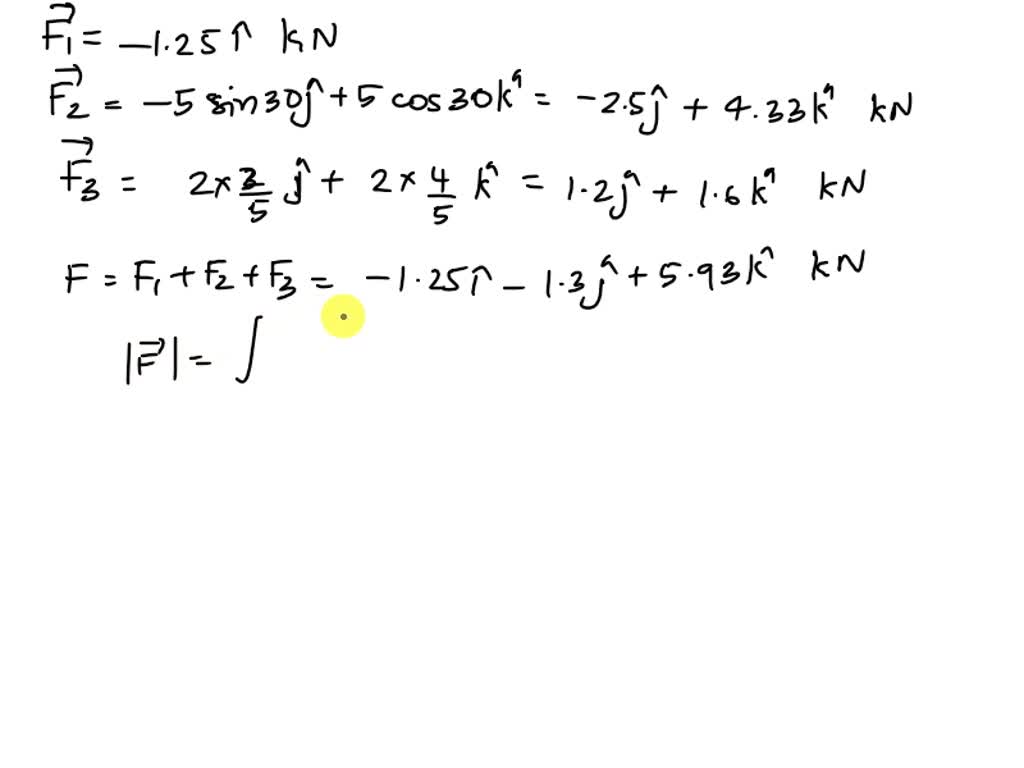 F⃗₁ = −1.25 î kN
F⃗₂ = −5 sin30ĵ + 5 cos30k̂ = −2.5ĵ + 4.33k̂ kN
F⃗₃ = 2×3/5 ĵ + 2×4/5 k̂ = 1.2ĵ + 1.6k̂ kN
F = F₁ + F₂ + F₃ = −1.25î − 1.3ĵ + 5.93k̂ kN
|F⃗| = ∫